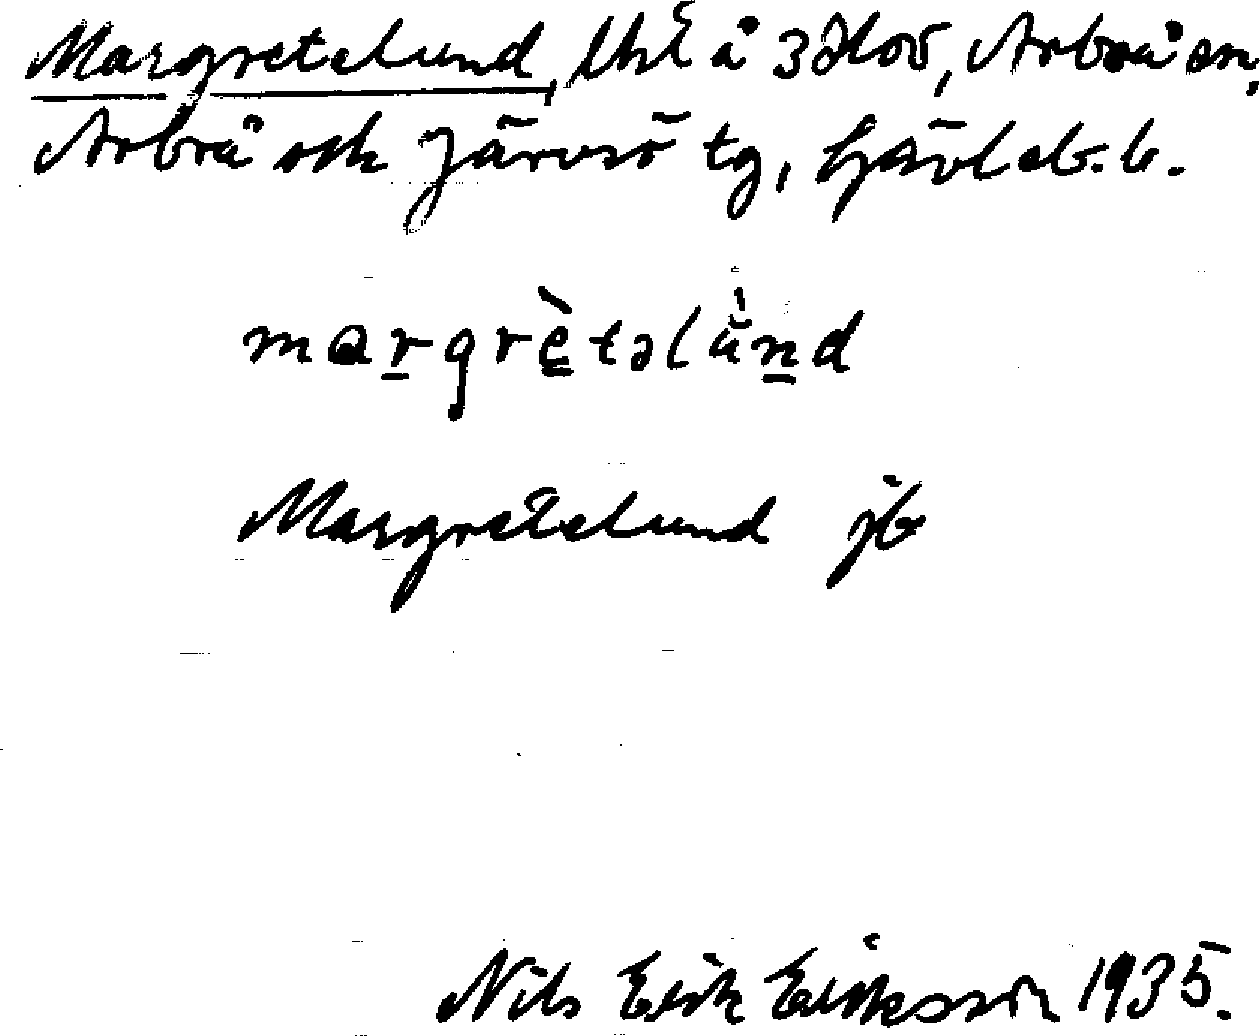 Margretelund, lht å 3 Hov, Arbrå sn,
Arbrå och Järvsö tg, Gävleb. l.
margrètəlùnd
Margretelund jb
Nils Erik Eriksson 1935.